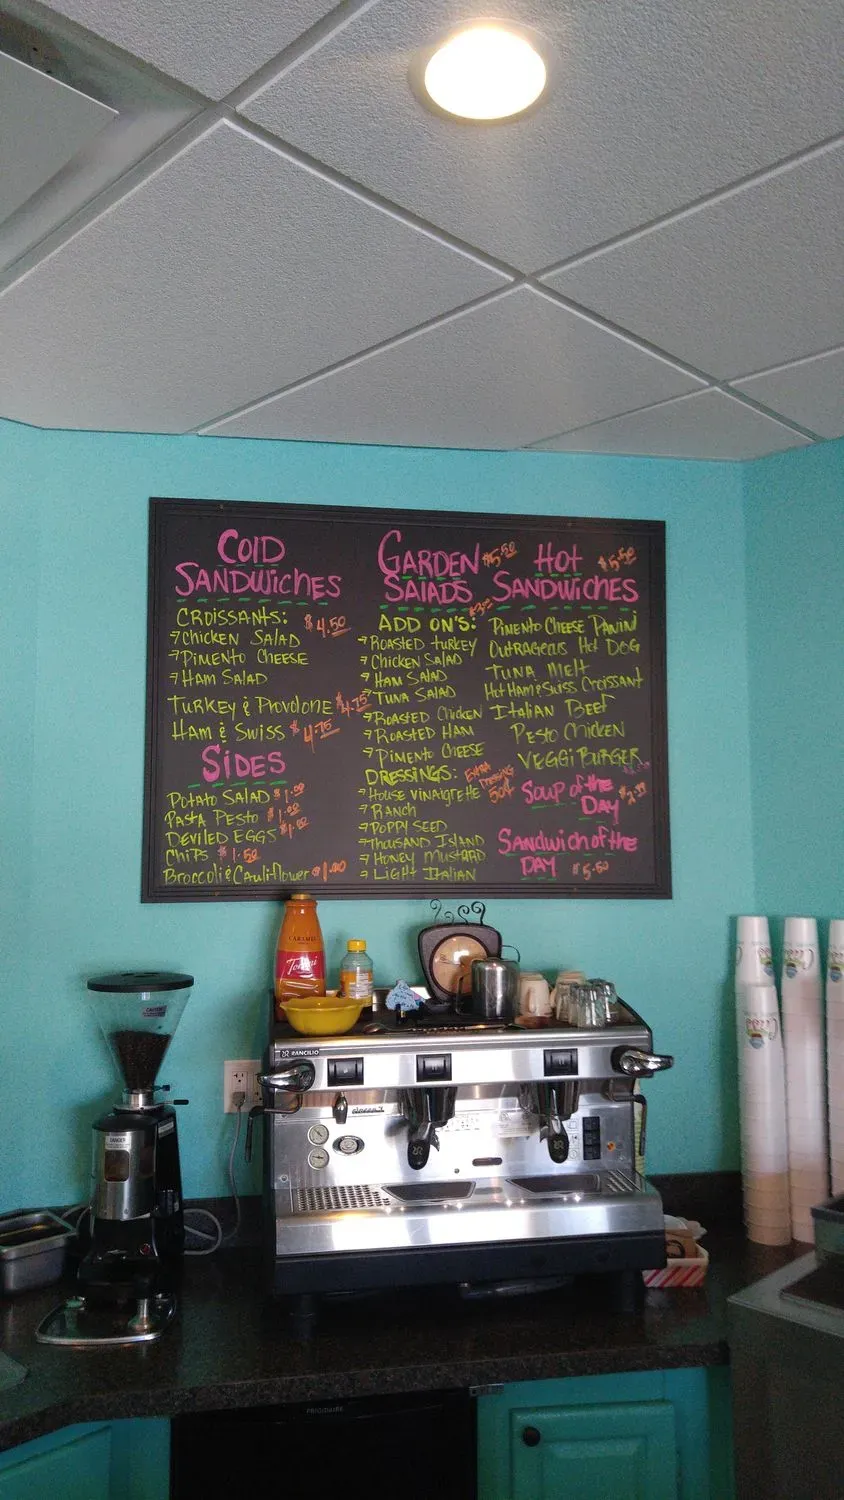 COLD
SANDWICHES
CROISSANTS: $4.50
→ CHICKEN SALAD
→ PIMENTO CHEESE
→ HAM SALAD
TURKEY & PROVOLONE $4.75
HAM & SWISS $4.75
SIDES
POTATO SALAD $1.00
PASTA PESTO $1.00
DEVILED EGGS $1.00
CHIPS $1.50
BROCCOLI & CAULIFLOWER $1.00
GARDEN $5.50
SALADS
ADD ON'S:
→ ROASTED TURKEY
→ CHICKEN SALAD
→ HAM SALAD
→ TUNA SALAD
→ ROASTED CHICKEN
→ ROASTED HAM
→ PIMENTO CHEESE
DRESSINGS: EXTRA DRESSING 50¢
→ HOUSE VINAIGRETTE
→ RANCH
→ POPPY SEED
→ THOUSAND ISLAND
→ HONEY MUSTARD
→ LIGHT ITALIAN
HOT $5.50
SANDWICHES
PIMENTO CHEESE PANINI
OUTRAGEOUS HOT DOG
TUNA MELT
HOT HAM & SWISS CROISSANT
ITALIAN BEEF
PESTO CHICKEN
VEGGI BURGER
SOUP of the
DAY
SANDWICH of the
DAY $5.50
CARAMEL
Torani
RANCILIO
DANGER
FRIGIDAIRE